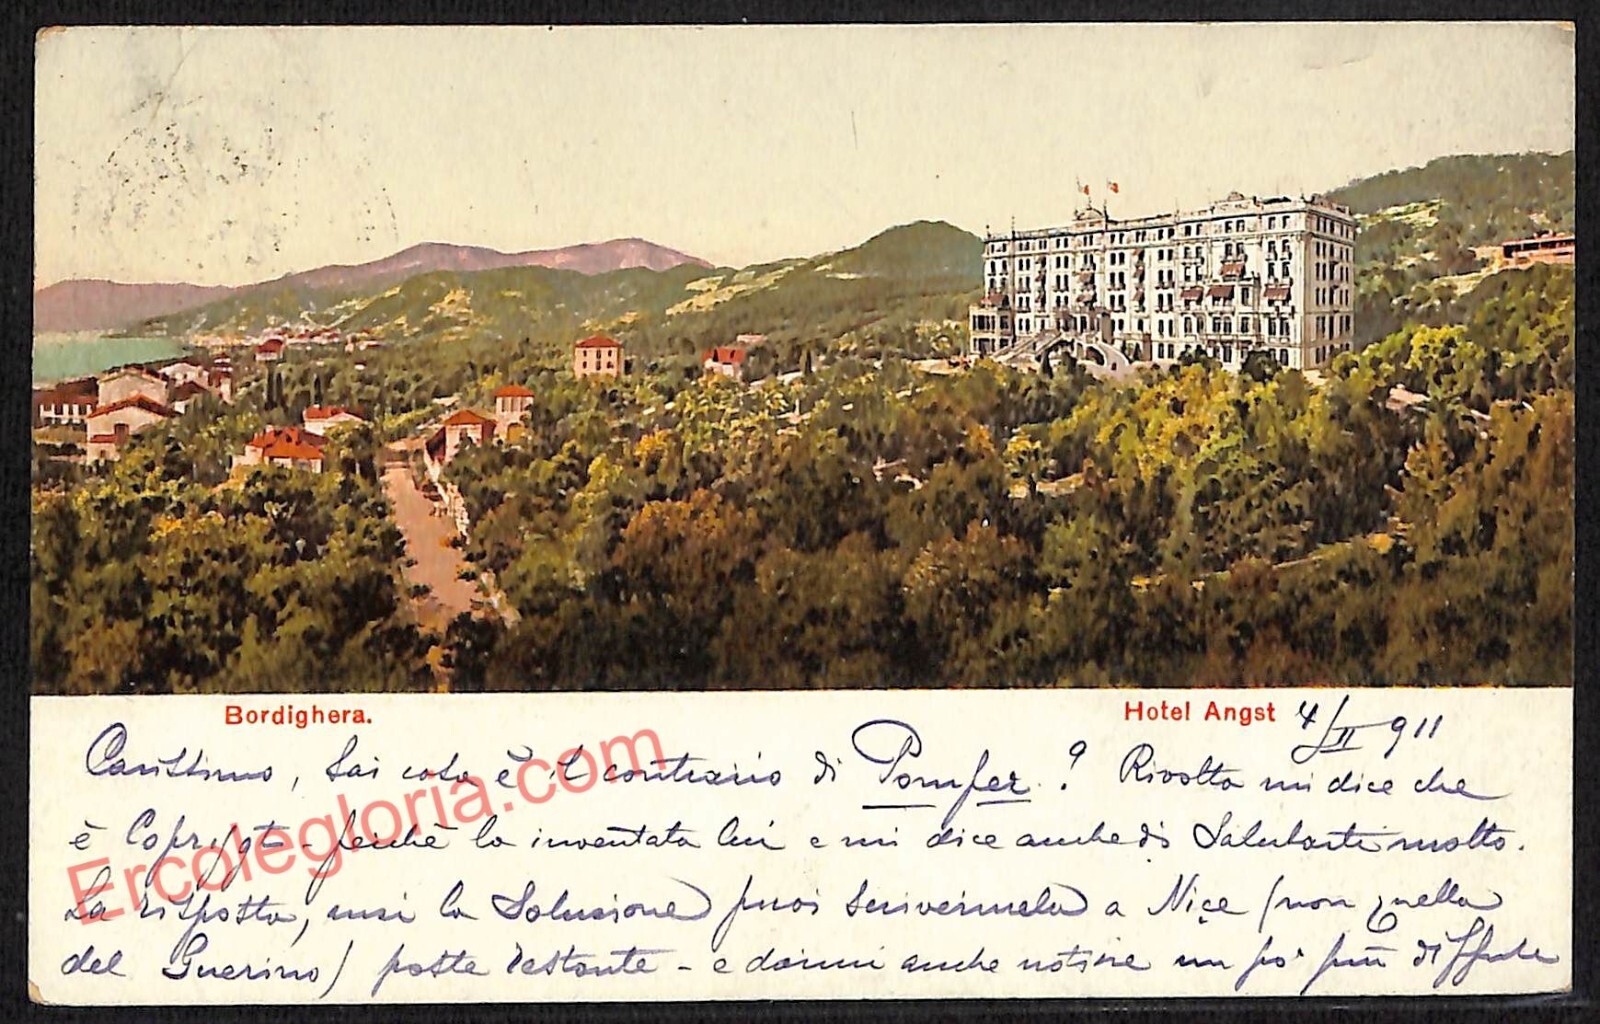 Bordighera.
Hotel Angst 4/II 911
Carissimo, Sai cosa è il contrario di Pomfez? Rivolta mi dice che
è Copr. fgt - perchè la inventata lui e mi dice anche di Salutarti molto.
La risposta, anzi la Soluzione puoi scrivermela a Nice (non quella
del Guerino) poste restante - e darmi anche notizie un po' più diffuse
Ercolegloria.com